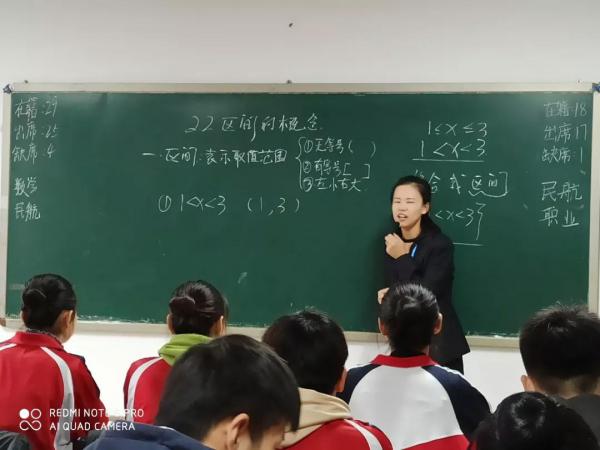 在籍:29
出席:25
缺席:4
数学
民航
2.2 区间的概念
一.区间:表示取值范围
①无等号( )
②有等号[ ]
③左小右大
① 1<x<3 (1,3)
1≤x≤3
1<x<3
合或区间]
<x<3}
在籍:18
出席17
缺席:1
民航
职业
REDMI NOTE 8 PRO
AI QUAD CAMERA